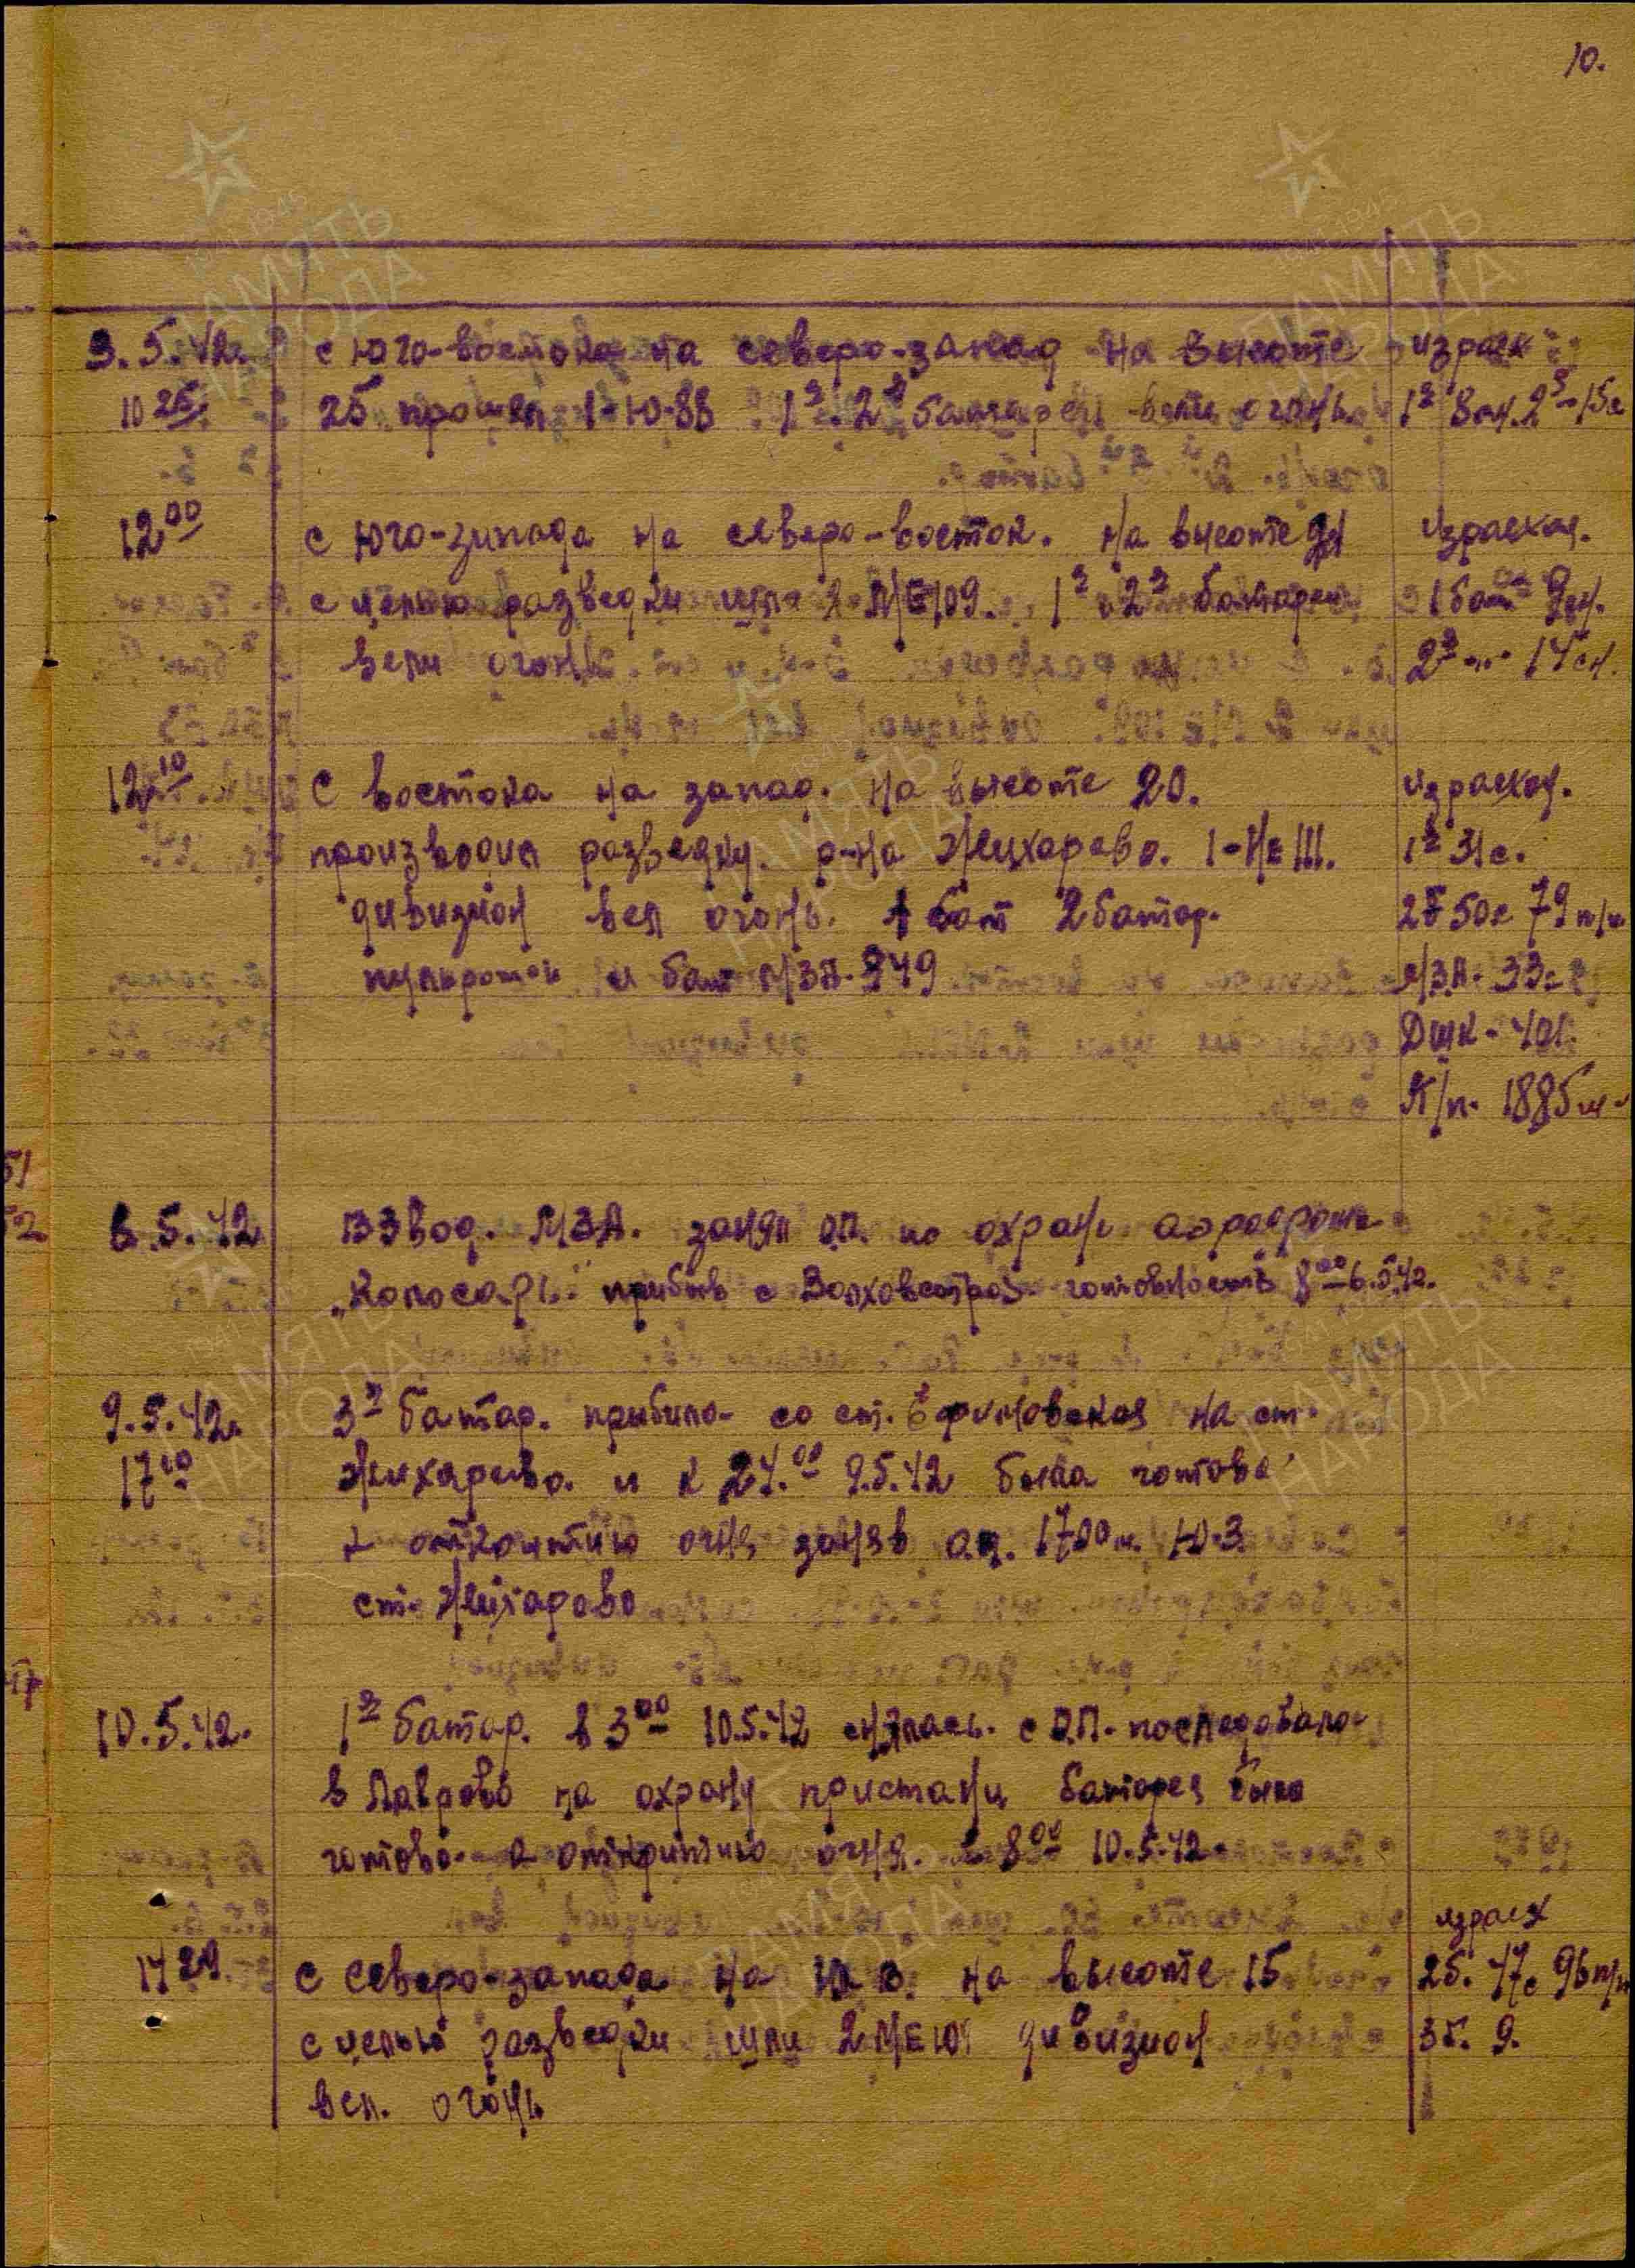 10.
3.5.42. с юго-востока на северо-запад на высоте израсх
10 25. 25 прошел 1-Ю-88 1я 2я батареи вели огонь. 1я 8сн. 2я-15с
12 00 с юго-запада на северо-восток. на высоте израсход.
с целью разведки шли 2 МЕ109. 1я 2я батареи 1 бат 9сн.
вели огонь 2я -"- 14 сн.
12 10 с востока на запад. на высоте 20. израсход.
производил разведку. р-на Жихарево. 1-НЕ 111. 1я 31с.
дивизион вел огонь. 1 бат 2 батар. 2б 50с 79 п/к
пульрота и бат МЗА-949 МЗА-33с
Дшк-
К/п. 1885 ш
6.5.42 Взвод. МЗА. занял О.П. по охране аэродрома
„Колосарь" прибыв с Волховстроя готовность 8 00 6.5.42.
9.5.42. 3я батар. прибыла со ст. Ефимовская на ст.
17 00 Жихарево. и к 24. 00 9.5.42 была готова
к открытию огня заняв о.п. 1700 м. Ю-З.
ст. Жихарево
10.5.42. 1я батар. в 3 00 10.5.42 снялась. с О.П. последовала
в Лаврово на охрану пристани батарея была
готова к открытию огня. к 8 00 10.5.42
израсх
с северо-запада на Ю В. на высоте 15 2б. 47с 96 п/к
с целью разведки шли 2 МЕ 109 дивизион 3б. 9.
вел. огонь